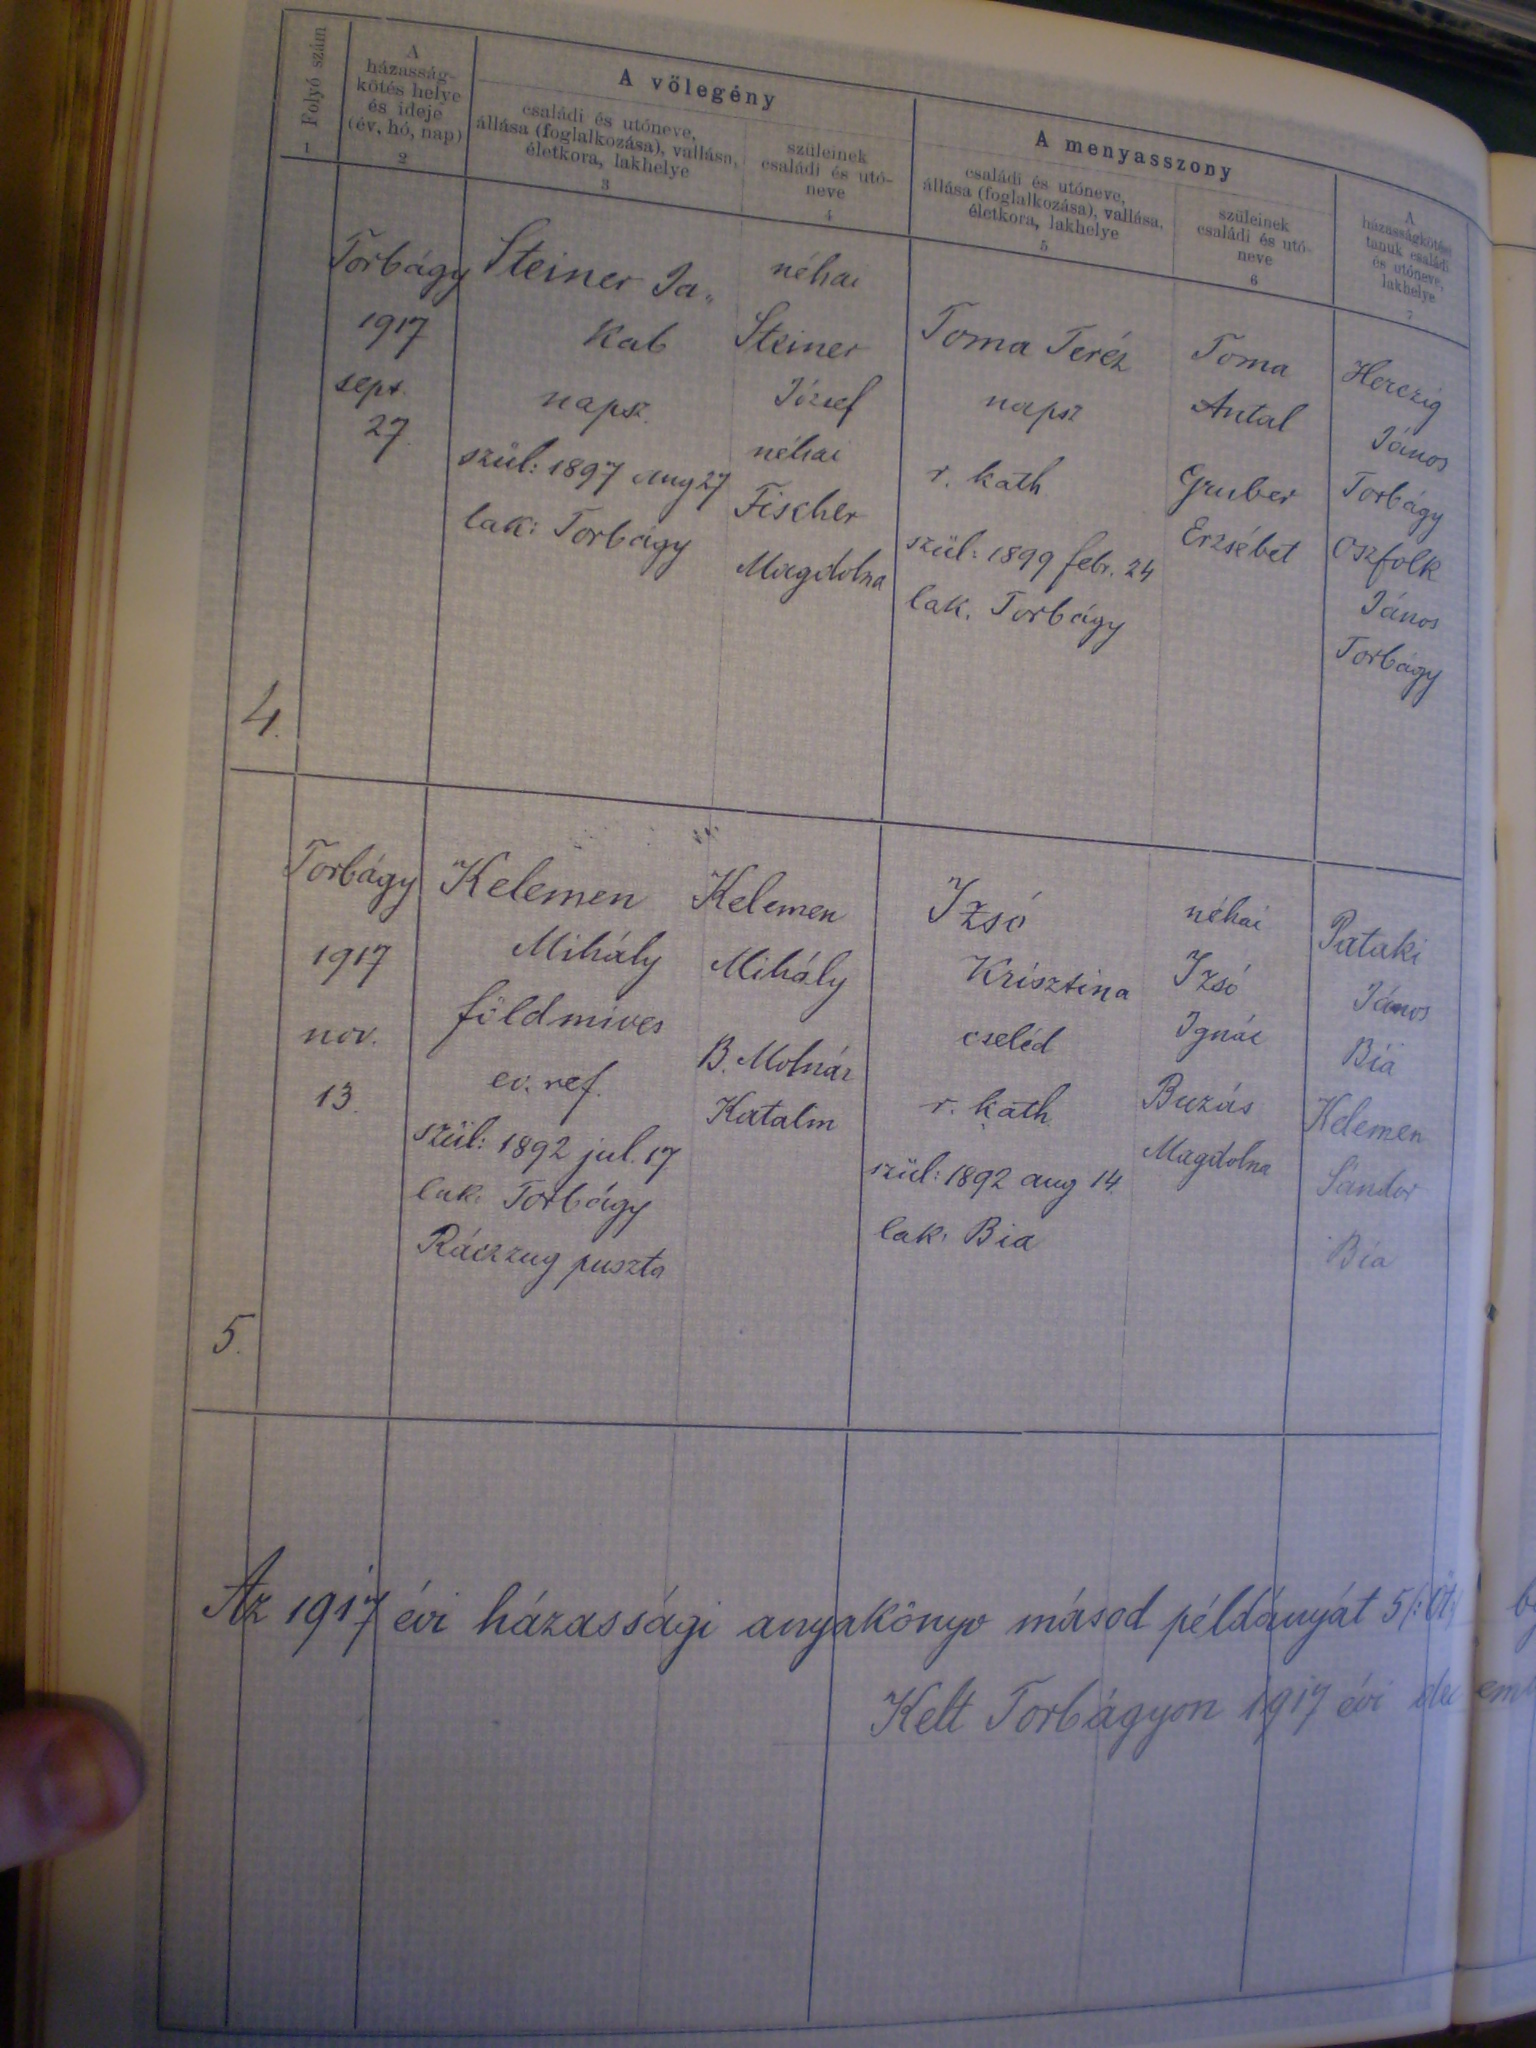 Folyó szám
1
A
házasság-
kötés helye
és ideje
(év, hó, nap)
2
A vőlegény
családi és utóneve,
állása (foglalkozása), vallása,
életkora, lakhelye
3
szüleinek
családi és utó-
neve
4
A menyasszony
családi és utóneve,
állása (foglalkozása), vallása,
életkora, lakhelye
5
szüleinek
családi és utó-
neve
6
A
házasságkötési
tanuk családi
és utóneve,
lakhelye
7
4.
Torbágy
1917
sept.
27.
Steiner Ja„
kab
napsz.
szül: 1897 aug 27
lak: Torbágy
néhai
Steiner
József
néhai
Fischer
Magdolna
Toma Teréz
napsz
r. kath
szül: 1899 febr. 24
lak. Torbágy
Toma
Antal
Gruber
Erzsébet
Herczig
János
Torbágy
Oszfolk
János
Torbágy
5.
Torbágy
1917
nov.
13.
Kelemen
Mihály
földmives
ev. ref.
szül: 1892 jul. 17
lak: Torbágy
Ráczzug puszta
Kelemen
Mihály
B. Molnár
Katalin
Izsó
Krisztina
cseléd
r. kath
szül: 1892 aug 14.
lak: Bia
néhai
Izsó
Ignác
Buzás
Magdolna
Pataki
János
Bia
Kelemen
Sándor
Bia
Az 1917 évi házassági anyakönyv másod példányát 5 /: Öt
Kelt Torbágyon 1917 évi decemb